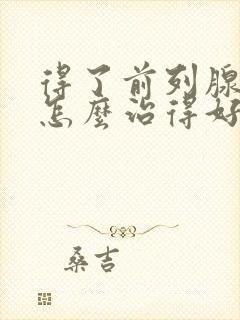 得了前列腺
怎麼治得好
桑吉